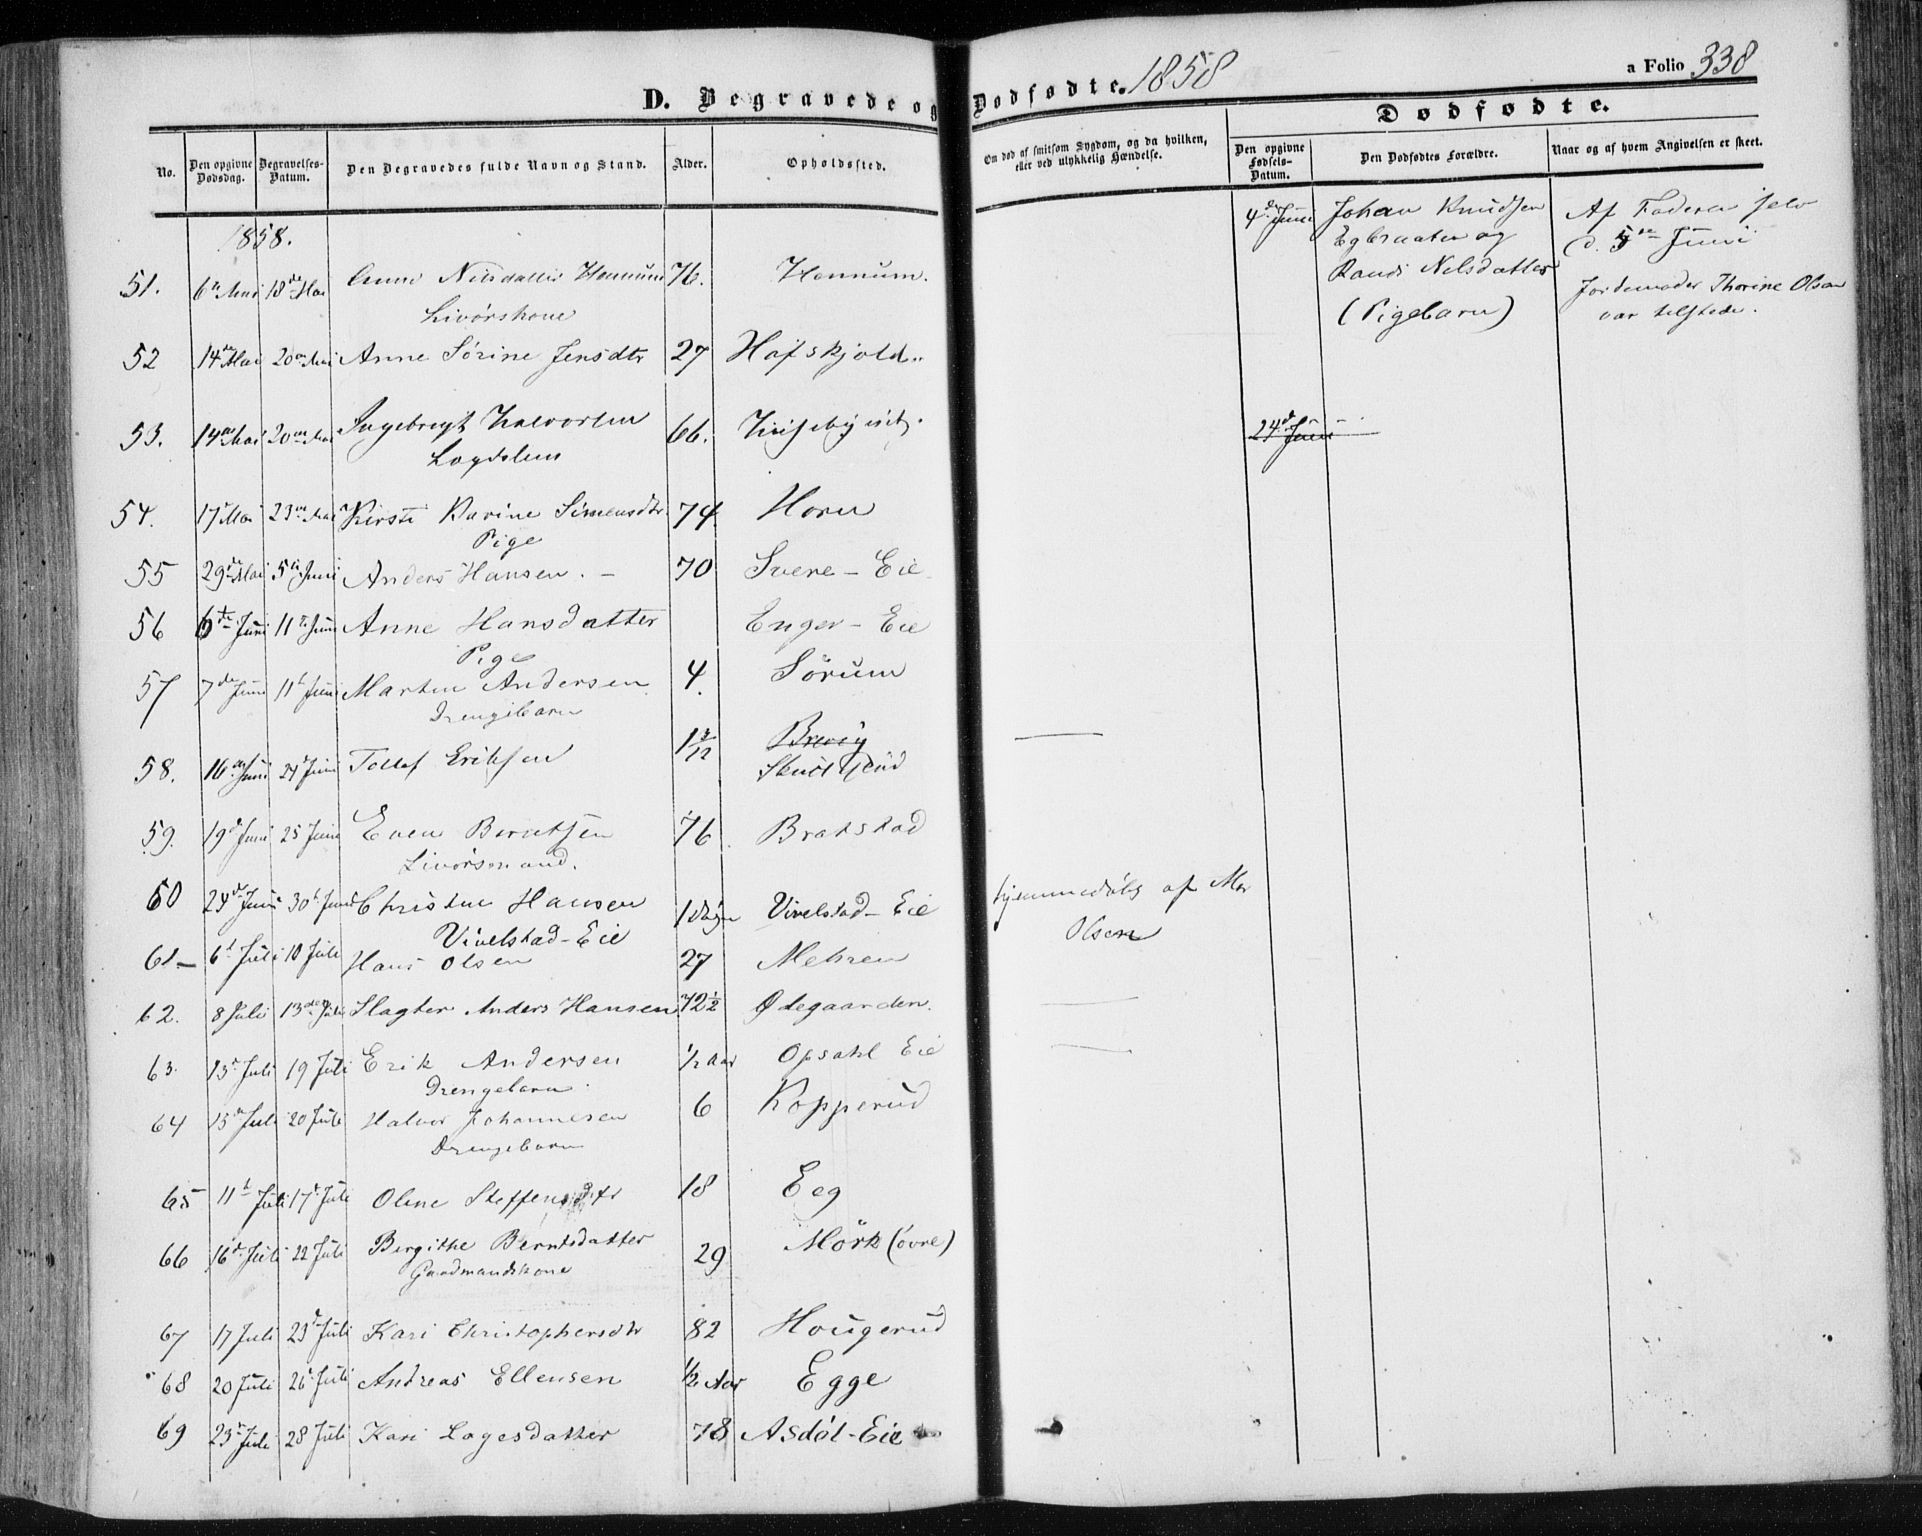 D. Begravede og Dødfødte. 1858
a Folio 338
Dødfødte.
No.
Den opgivne Dødsdag.
Begravelses-Datum.
Den Begravedes fulde Navn og Stand.
Alder.
Opholdssted.
Om død af smitsom Sygdom, og da hvilken, eller ved ulykkelig Hændelse.
Den opgivne Fødsels-Datum.
Den Dødfødtes Forældre.
Naar og af hvem Angivelsen er skeet.
1858.
51. 6te Mai 18de Mai Anne Nilsdatter Hennum 76. Hennum.
Livørskone
52 14de Mai 20de Mai Anne Sørine Jensdtr 27 Hafskjold.
53. 14de Mai 20de Mai Ingebregt Halvorsen 66.
Lægdslem
54. 17 Mai 23de Mai Kirsti Karine Simensdtr. 74 Horn
Pige
55 29de Mai 5te Juni Anders Hansen. – 70 Svere – Eie
56 6te Juni 11te Juni Anne Hansdatter Enger – Eie
Pige
57 7de Juni 11t Juni Martin Andersen 4. Sørum
Drengebarn
58. 16de Juni 21 Juni Tollef Eriksen 1 3/12 Brevig
59. 19d Juni 25 Juni Even Berntsen 76. Bratstad
Livørsmand.
60 24de Juni 30t Juni Christen Hansen 1 Døgn Vivelstad – Eie hjemmedøbt af Mor
Vivelstad – Eie Olsen
61 – 6t Juli 10 Juli Hans Olsen 27 Mehren
62. 8 Juli 13de Juli Slagter Anders Hansen 72½ Ødegaarden.
63. 13d Juli 19 Juli Erik Andersen ½ Aar Opsahl Eie
Drengebarn.
64 15de Juli 20 Juli Halvor Johannesen 6 Kopperud
Drengebarn
65 11t Juli 17d Juli Oline Steffensdtr 18 Eeg
66 16d Juli 22 Juli Birgithe Berntsdatter 29 Mörk (øvre)
Gaardmandskone
67 17 Juli 23d Juli Kari Christophersdtr 82 Hougerud
68 20 Juli 26 Juli Andreas Ellensen ½ Aar Egge
69 23d Juli 28 Juli Kari Lagesdatter 78 Asdøl-Eie
4de Juni Johan Knudsen Af Faderen selv
Egbraaten og d. 5te Juni
Randi Nelsdatter Jordemoder Thorine Olsen
(Pigebarn) var tilstede.
24d Juni